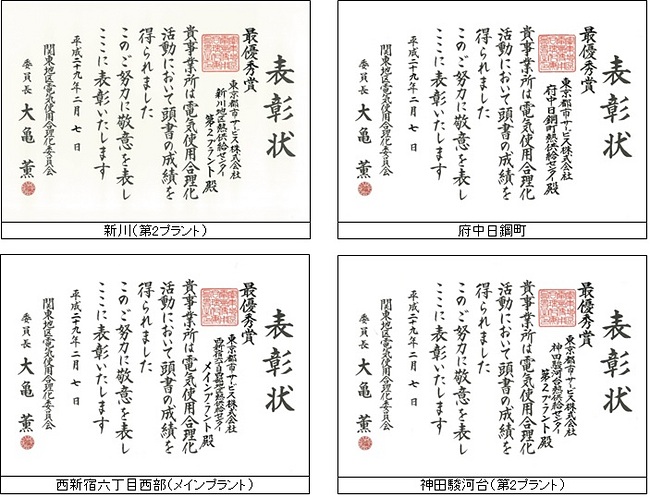 表彰状
最優秀賞
東京都市サービス株式会社
新川地区熱供給センター
第2プラント殿
貴事業所は電気使用合理化
活動において頭書の成績を
得られました
このご努力に敬意を表し
ここに表彰いたします
平成二十九年二月七日
関東地区電気使用合理化委員会
委員長 大亀薫
新川(第2プラント)
表彰状
最優秀賞
東京都市サービス株式会社
府中日鋼町熱供給センター殿
貴事業所は電気使用合理化
活動において頭書の成績を
得られました
このご努力に敬意を表し
ここに表彰いたします
平成二十九年二月七日
関東地区電気使用合理化委員会
委員長 大亀薫
府中日鋼町
表彰状
最優秀賞
東京都市サービス株式会社
西新宿六丁目西部地区熱供給センター
メインプラント殿
貴事業所は電気使用合理化
活動において頭書の成績を
得られました
このご努力に敬意を表し
ここに表彰いたします
平成二十九年二月七日
関東地区電気使用合理化委員会
委員長 大亀薫
西新宿六丁目西部(メインプラント)
表彰状
最優秀賞
東京都市サービス株式会社
神田駿河台熱供給センター
第2プラント殿
貴事業所は電気使用合理化
活動において頭書の成績を
得られました
このご努力に敬意を表し
ここに表彰いたします
平成二十九年二月七日
関東地区電気使用合理化委員会
委員長 大亀薫
神田駿河台(第2プラント)